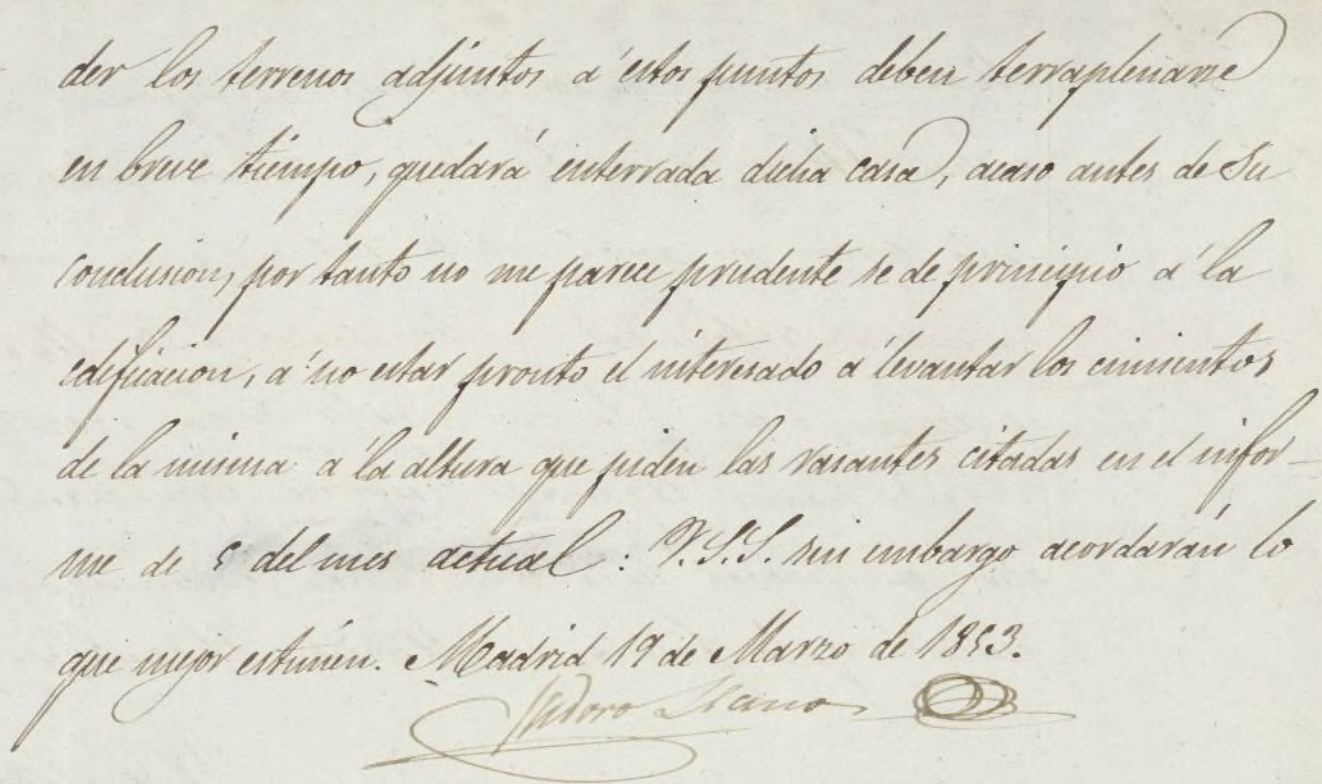 der los terrenos adjuntos á estos puntos deben terraplenarse
en breve tiempo, quedará enterrada dicha casa, acaso antes de su
conclusion, por tanto no me parece prudente se de principio á la
edificacion, á no estar pronto el interesado á levantar los cimientos
de la misma á la altura que piden las rasantes citadas en el infor-
me de 5 del mes actual: V.S.S. sin embargo acordarán lo
que mejor estimen. Madrid 19 de Marzo de 1853.
Isidoro Llanos